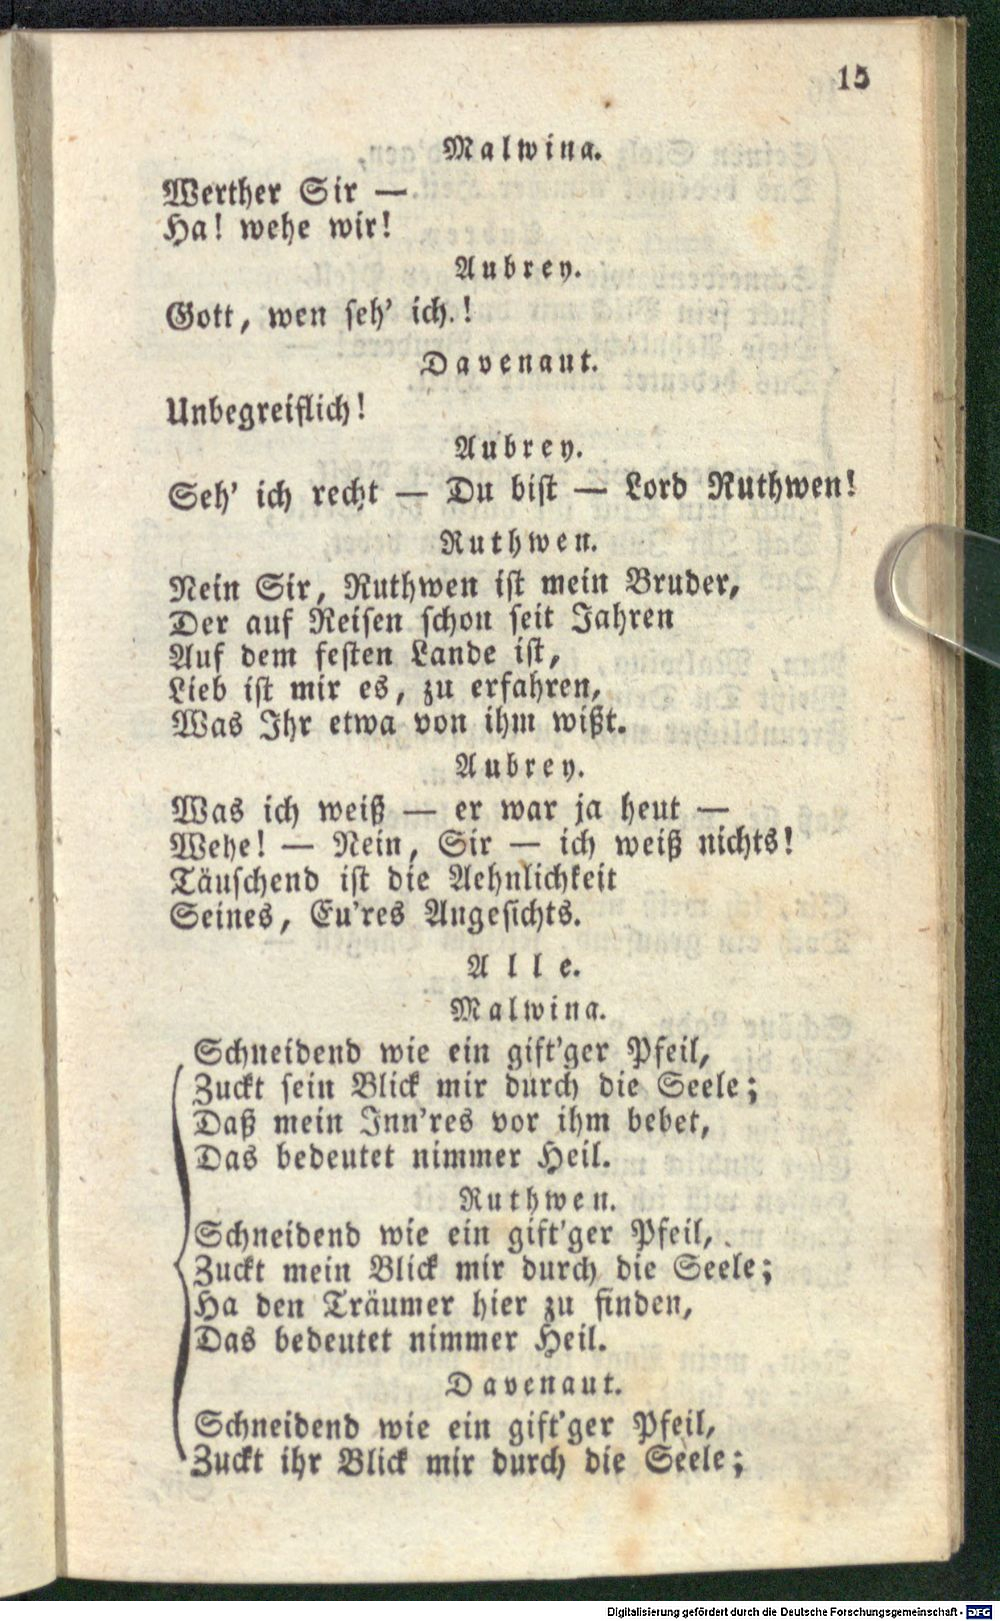 15
Malwina.
Werther Sir —
Ha! wehe wir!
Aubrey.
Gott, wen seh' ich.!
Davenaut.
Unbegreiflich!
Aubrey.
Seh' ich recht — Du bist — Lord Ruthwen!
Ruthwen.
Nein Sir, Ruthwen ist mein Bruder,
Der auf Reisen schon seit Jahren
Auf dem festen Lande ist,
Lieb ist mir es, zu erfahren,
Was Ihr etwa von ihm wißt.
Aubrey.
Was ich weiß — er war ja heut —
Wehe! — Nein, Sir — ich weiß nichts!
Täuschend ist die Aehnlichkeit
Seines, Eu'res Angesichts.
Alle.
Malwina.
Schneidend wie ein gift'ger Pfeil,
Zuckt sein Blick mir durch die Seele;
Daß mein Inn'res vor ihm bebet,
Das bedeutet nimmer Heil.
Ruthwen.
Schneidend wie ein gift'ger Pfeil,
Zuckt mein Blick mir durch die Seele;
Ha den Träumer hier zu finden,
Das bedeutet nimmer Heil.
Davenaut.
Schneidend wie ein gift'ger Pfeil,
Zuckt ihr Blick mir durch die Seele;
Digitalisierung gefördert durch die Deutsche Forschungsgemeinschaft - DFG